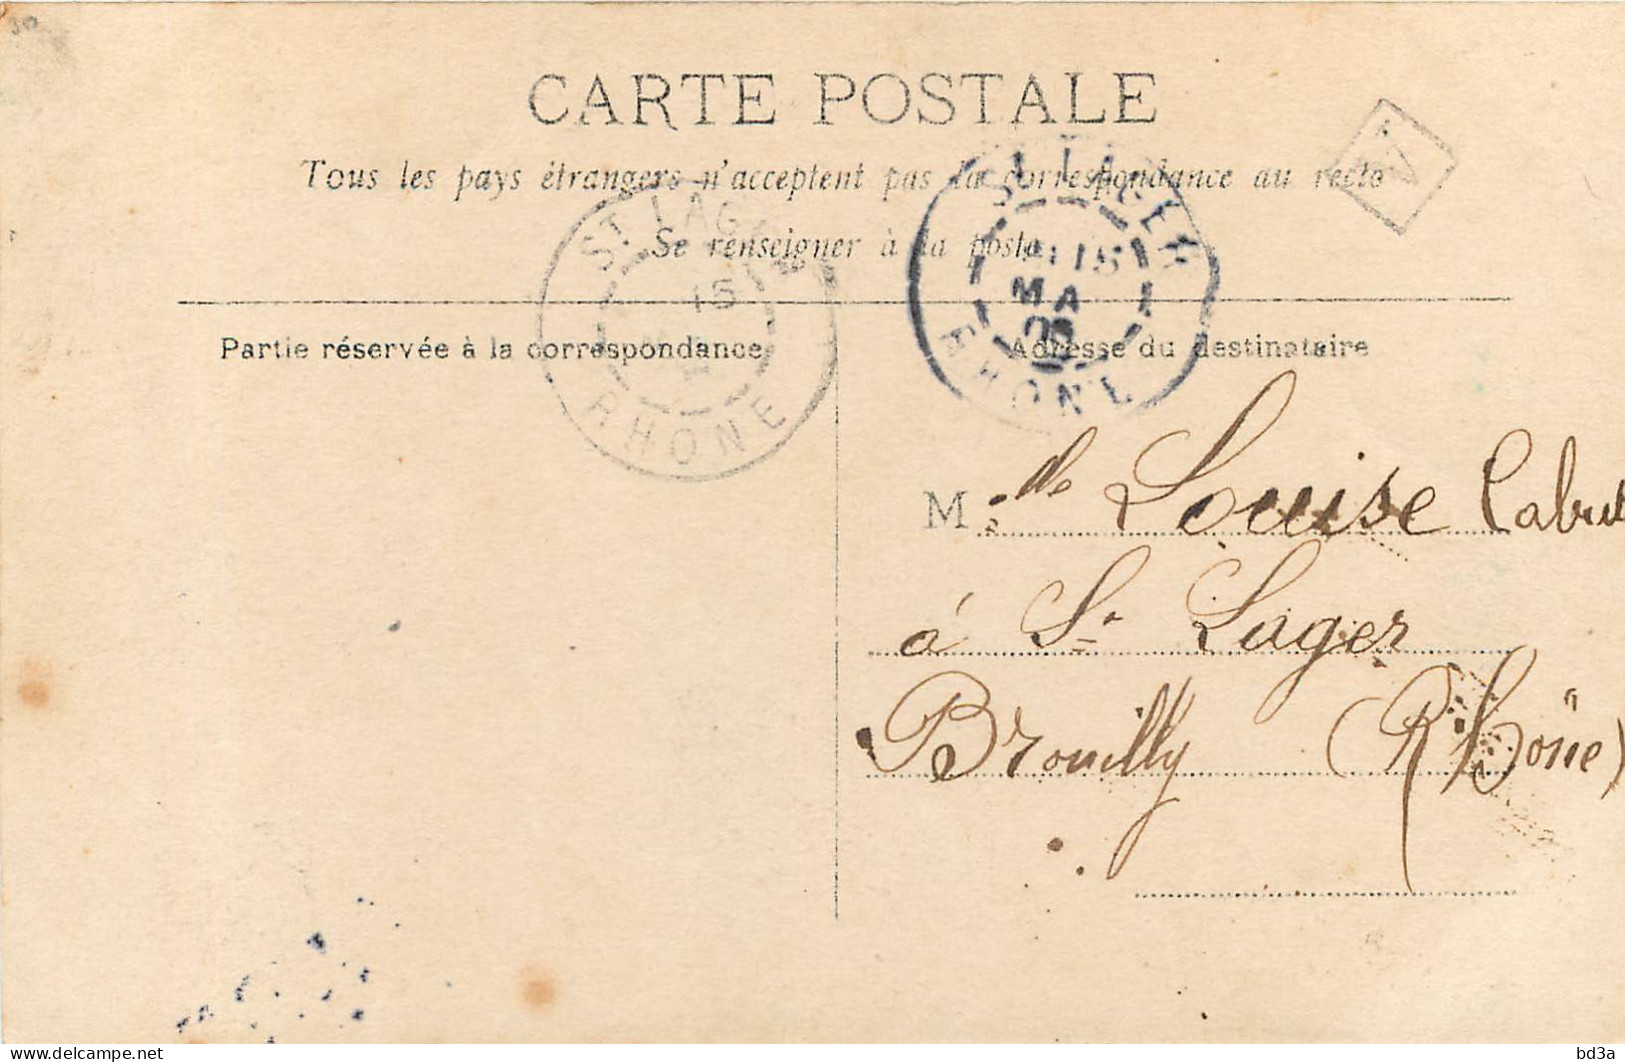 CARTE POSTALE
Tous les pays étrangers n'acceptent pas la correspondance au recto
Se renseigner à la poste
Partie réservée à la correspondance
Adresse du destinataire
ST LAGER
15
RHONE
ST LAGER
15
MA
RHONE
Mlle Louise
à St Lager
Brouilly (Rhône)
delcampe.net
bd3a